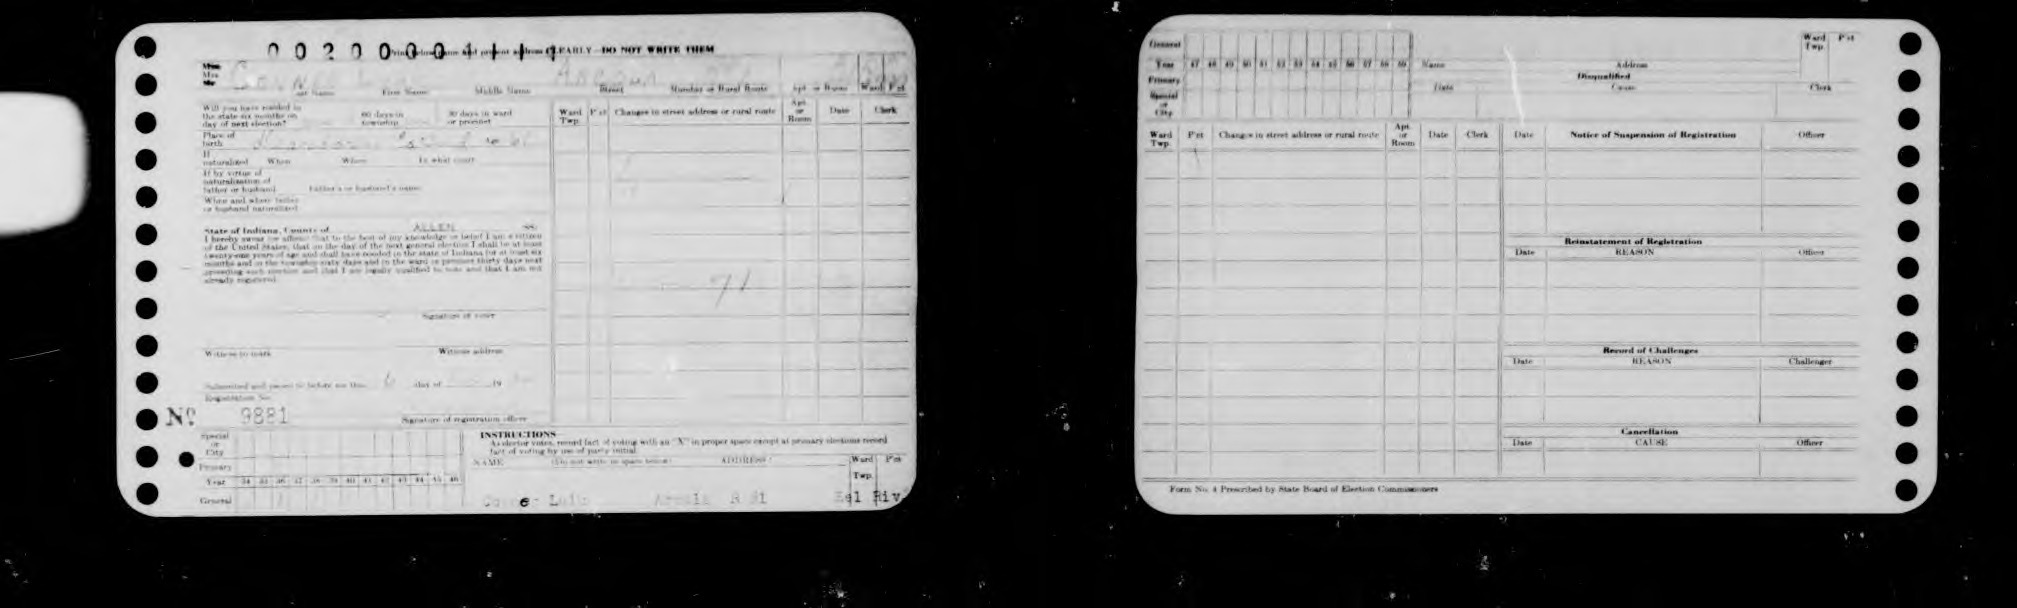 002000041
CLEARLY—DO NOT WRITE THEM
Miss
Mrs.
Mr.
First Name Middle Name Street Number or Rural Route Apt. or Room Ward Pct
Will you have resided in
the state six months on
day of next election?
60 days in
township
30 days in ward
or precinct
Place of
birth
Age
If
naturalized When Where In what court
If by virtue of
naturalization of
father or husband Father's or husband's name
When and where father
or husband naturalized
State of Indiana, County of ALLEN SS:
I hereby swear (or affirm) that to the best of my knowledge or belief I am a citizen
of the United States, that on the day of the next general election I shall be at least
twenty-one years of age and shall have resided in the state of Indiana for at least six
months and in the township sixty days and in the ward or precinct thirty days next
preceding such election and that I am legally qualified to vote and that I am not
already registered.
Signature of voter
Witness to mark Witness address
Subscribed and sworn to before me this 6 day of 19
Registration No.
No. 9881
Signature of registration officer
Ward
Twp. Pct Changes in street address or rural route Apt.
or
Room Date Clerk
71
INSTRUCTIONS—
As elector votes, record fact of voting with an "X" in proper space except at primary elections record
fact of voting by use of party initial.
NAME (Do not write in space below) ADDRESS Ward
Twp. Pct
Special
or
City
Primary
Year 34 35 36 37 38 39 40 41 42 43 44 45 46
General
Arcola R #1 Eel Riv
General
Year 47 48 49 50 51 52 53 54 55 56 57 58 59
Primary
Special
or
City
Name Address
Ward
Twp. Pct
Disqualified
Date Cause Clerk
Ward
Twp. Pct Changes in street address or rural route Apt.
or
Room Date Clerk
Date Notice of Suspension of Registration Officer
Reinstatement of Registration
Date REASON Officer
Record of Challenges
Date REASON Challenger
Cancellation
Date CAUSE Officer
Form No. 4 Prescribed by State Board of Election Commissioners